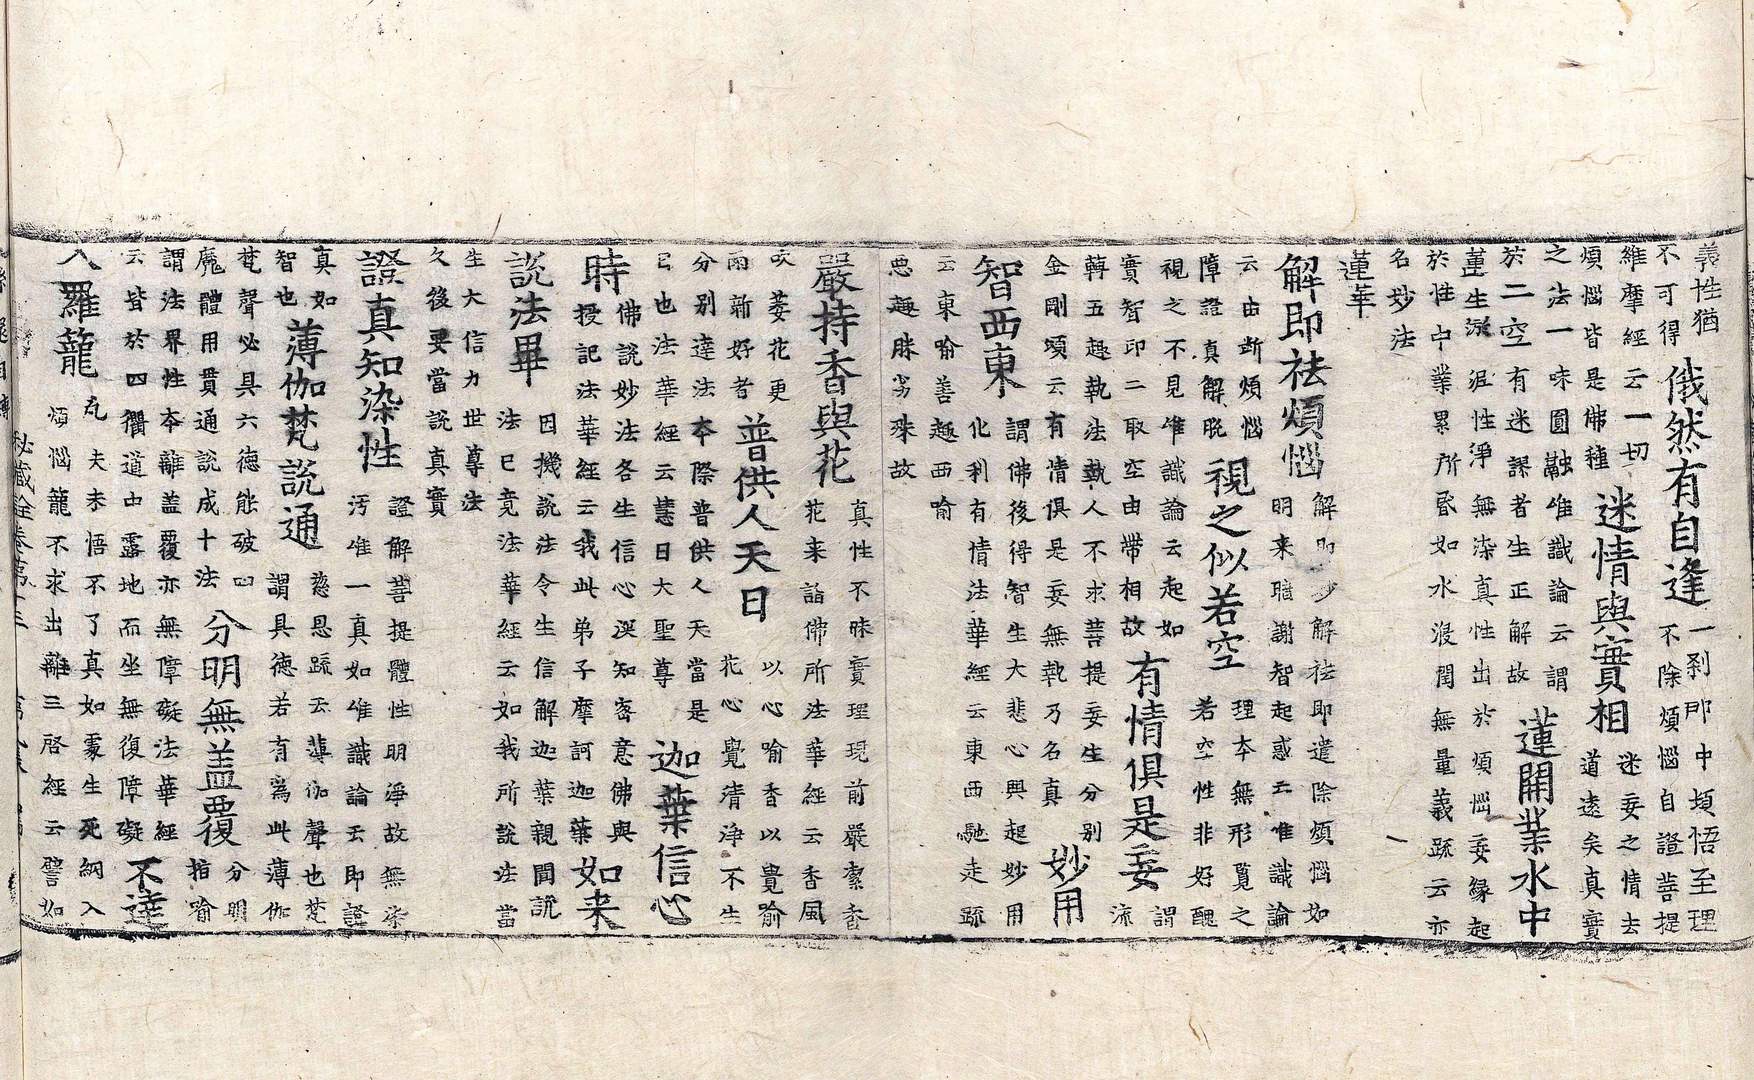 義性猶
不可得
俄然有自逢
一刹那中頓悟至理
不除煩惱自證菩提
維摩經云一切
煩惱皆是佛種
迷情與實相
迷妄之情去
道遠矣真實
之法一味圓融唯識論云謂
於二空有迷謬者生正解故
蓮開業水中
生淤泥性淨無染真性出於煩惱妄緣起
於性中業累所昏如水浸閏無量義䟽云亦
名妙法
蓮華
解即祛煩惱
解即妙解祛即遣除煩惱如
明来暗謝智起惑亡唯識論
云由斷煩惱
障證真解脫
視之似若空
理本無形覓之
若空性非好醜
視之不見唯識論云起如
實智印二取空由帶相故
有情俱是妄
謂
流
轉五趣執法執人不求菩提妄生分别
金剛頌云有情俱是妄無執乃名真
妙用
智西東
謂佛後得智生大悲心興起妙用
化利有情法華經云東西馳走䟽
云東喻善趣西喻
惡趣勝劣殊故
嚴持香與花
真性不昧實理現前嚴潔香
花来詣佛所法華經云香風
吹萎花更
雨新好者
普供人天日
以心喻香以覺喻
花心覺清淨不生
分别達法本際普供人天當是
日也法華經云慧日大聖尊
迦葉信心
時
佛說妙法各生信心深知密意佛與
授記法華經云我此弟子摩訶迦葉
如来
說法畢
因機說法令生信解迦葉親聞說
法已竟法華經云如我所說法當
生大信力世尊法
久後要當說真實
證真知染性
證解菩提體性明淨故無染
污唯一真如唯識論云即證
真如
智也
薄伽梵說通
慈恩䟽云薄伽聲也梵
謂具德若有為此薄伽
梵聲必具六德能破四
魔體用貫通說成十法
分明無盖覆
分明
指喻
謂法界性本離盖覆亦無障礙法華經
云皆於四衢道中露地而坐無復障礙
不達
入羅籠
凡夫未悟不了真如處生死網入
煩惱籠不求出離三啓經云譬如
秘藏詮卷第十三